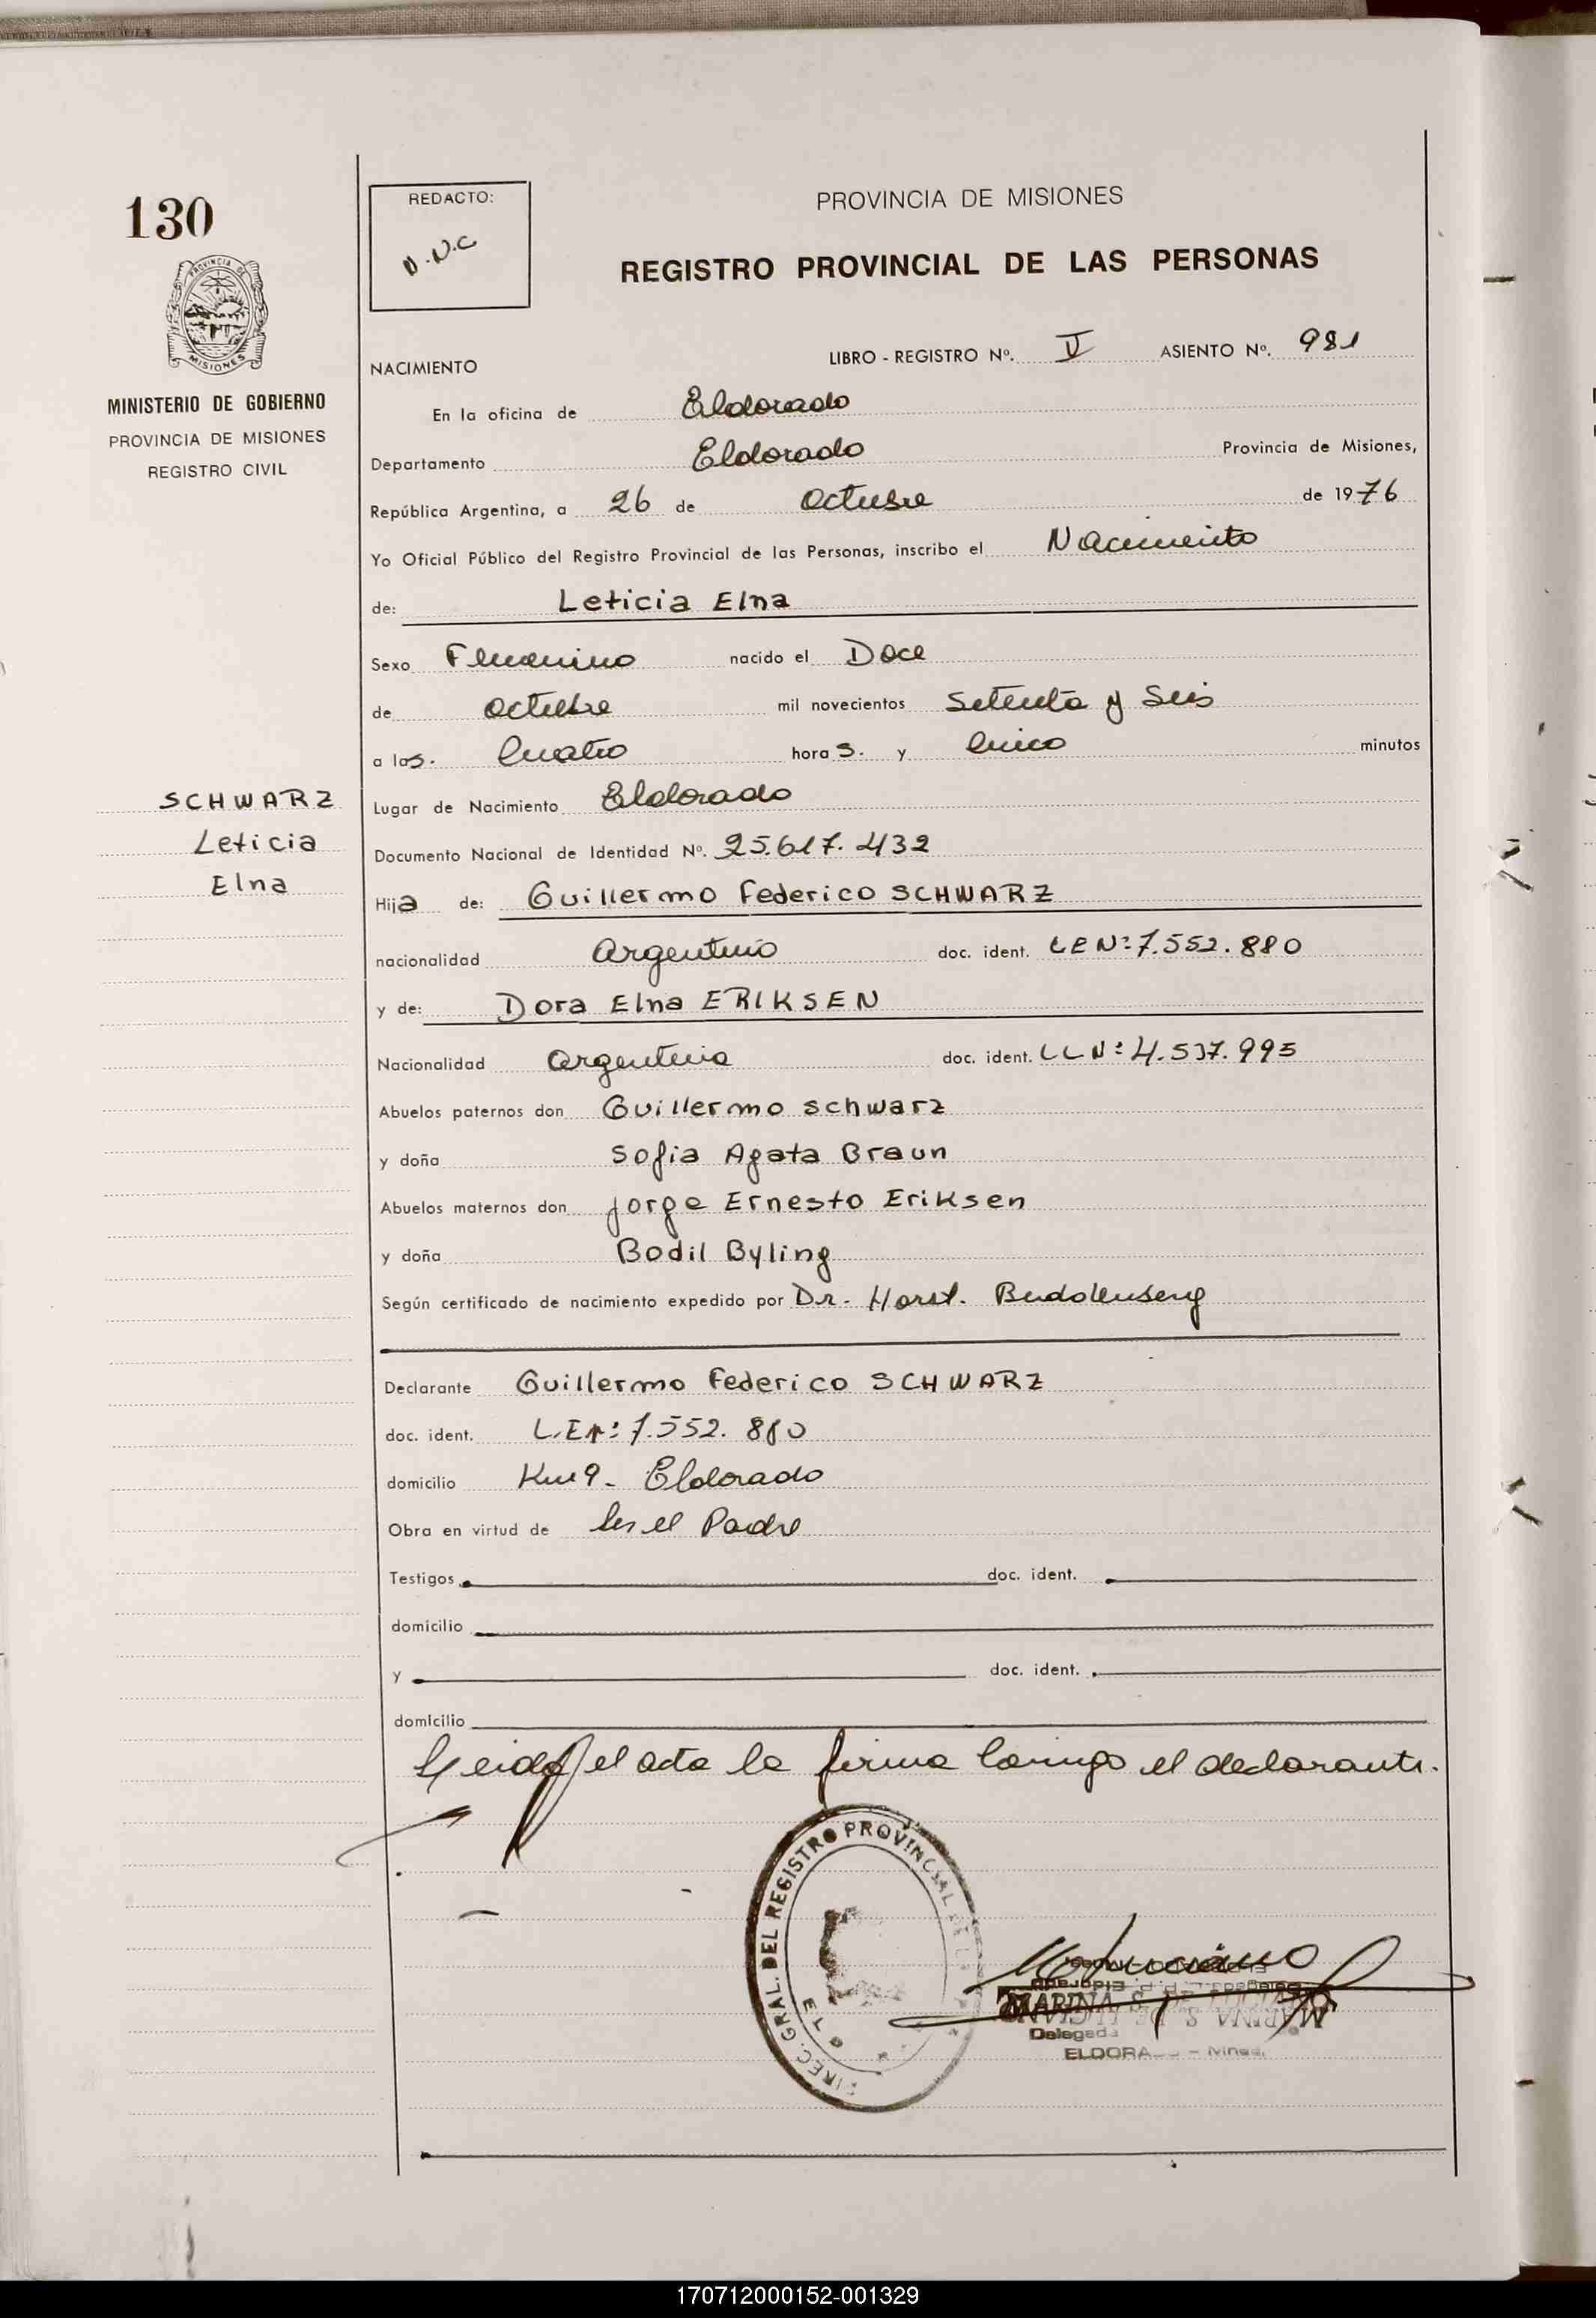 130
REDACTO:
D.N.C
PROVINCIA DE MISIONES
REGISTRO PROVINCIAL DE LAS PERSONAS
PROVINCIA DE
MISIONES
MINISTERIO DE GOBIERNO
PROVINCIA DE MISIONES
REGISTRO CIVIL
NACIMIENTO LIBRO - REGISTRO Nº. V ASIENTO Nº. 981
En la oficina de Eldorado
Departamento Eldorado Provincia de Misiones,
República Argentina, a 26 de Octubre de 1976
Yo Oficial Público del Registro Provincial de las Personas, inscribo el Nacimiento
de: Leticia Elna
Sexo Femenino nacido el Doce
de octubre mil novecientos Setenta y Seis
a las. Cuatro horas. y Cinco minutos
SCHWARZ
Leticia
Elna
Lugar de Nacimiento Eldorado
Documento Nacional de Identidad Nº. 25.617.432
Hija de: Guillermo Federico SCHWARZ
nacionalidad Argentino doc. ident. LE Nº 7.552.880
y de: Dora Elna ERIKSEN
Nacionalidad Argentina doc. ident. LC Nº 4.537.995
Abuelos paternos don Guillermo Schwarz
y doña Sofia Agata Braun
Abuelos maternos don Jorge Ernesto Eriksen
y doña Bodil Byling
Según certificado de nacimiento expedido por Dr. Horst.
Declarante Guillermo Federico SCHWARZ
doc. ident. L.E Nº 7.552.880
domicilio Km 9 - Eldorado
Obra en virtud de Ser el Padre
Testigos doc. ident.
domicilio
y doc. ident.
domicilio
Leida el acta la firma Conmigo el declarante.
DIREC. GRAL. DEL REGISTRO PROVINCIAL DE L
ELD
MARINA S. DE
Delegada
ELDORA
170712000152-001329